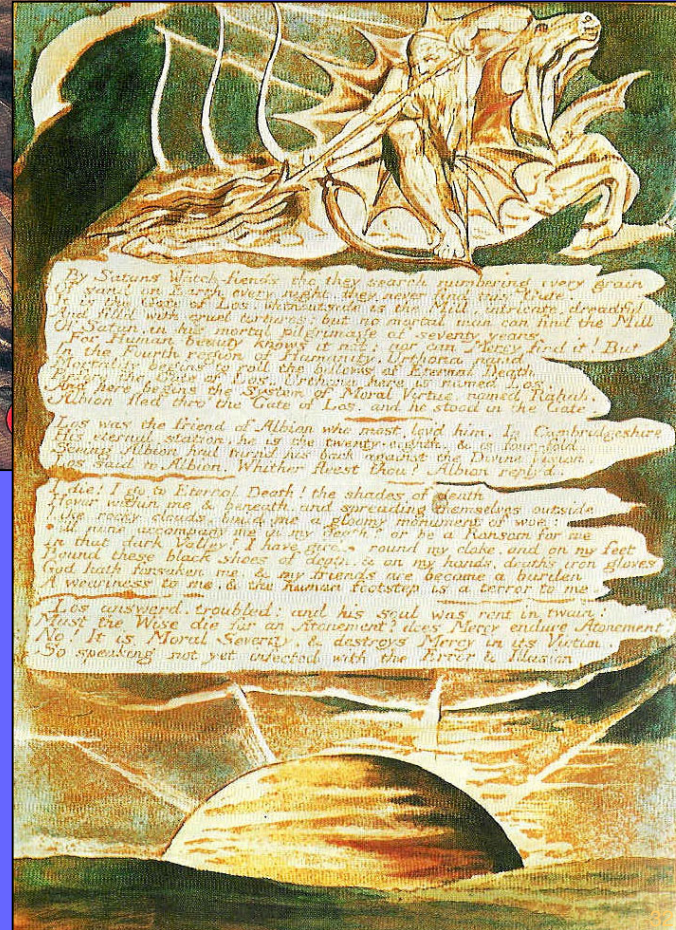 By Satans Watch-fiends tho' they search numbering every grain
Of sand on Earth every night, they never find this Gate.
It is the Gate of Los. Withoutside is the Mill, intricate, dreadful
And fill'd with cruel tortures; but no mortal man can find the Mill
Of Satan, in his mortal pilgrimage of seventy years
For Human beauty knows it not: nor can Mercy find it! But
In the Fourth region of Humanity, Urthona namd
Mortality begins to roll the billows of Eternal Death
Before the Gate of Los. Urthona here is named Los.
And here begins the System of Moral Virtue, named Rahab.
Albion fled thro' the Gate of Los, and he stood in the Gate.
Los was the friend of Albion who most lov'd him. In Cambridgeshire
His eternal station, he is the twenty-eighth, & is four-fold.
Seeing Albion had turn'd his back against the Divine Vision,
Los said to Albion. Whither fleest thou? Albion reply'd.
I die! I go to Eternal Death! the shades of death
Hover within me & beneath, and spreading themselves outside
Like rocky clouds, build me a gloomy monument of woe:
Will none accompany me in my death? or be a Ransom for me
In that dark Valley? I have girded round my cloke, and on my feet
Bound these black shoes of death, & on my hands, death's iron gloves
God hath forsaken me, & my friends are become a burden
A weariness to me, & the human footstep is a terror to me.
Los answerd, troubled: and his soul was rent in twain:
Must the Wise die for an Atonement? does Mercy endure Atonement
No! It is Moral Severity, & destroys Mercy in its Victim
So speaking not yet infected with the Error & Illusion